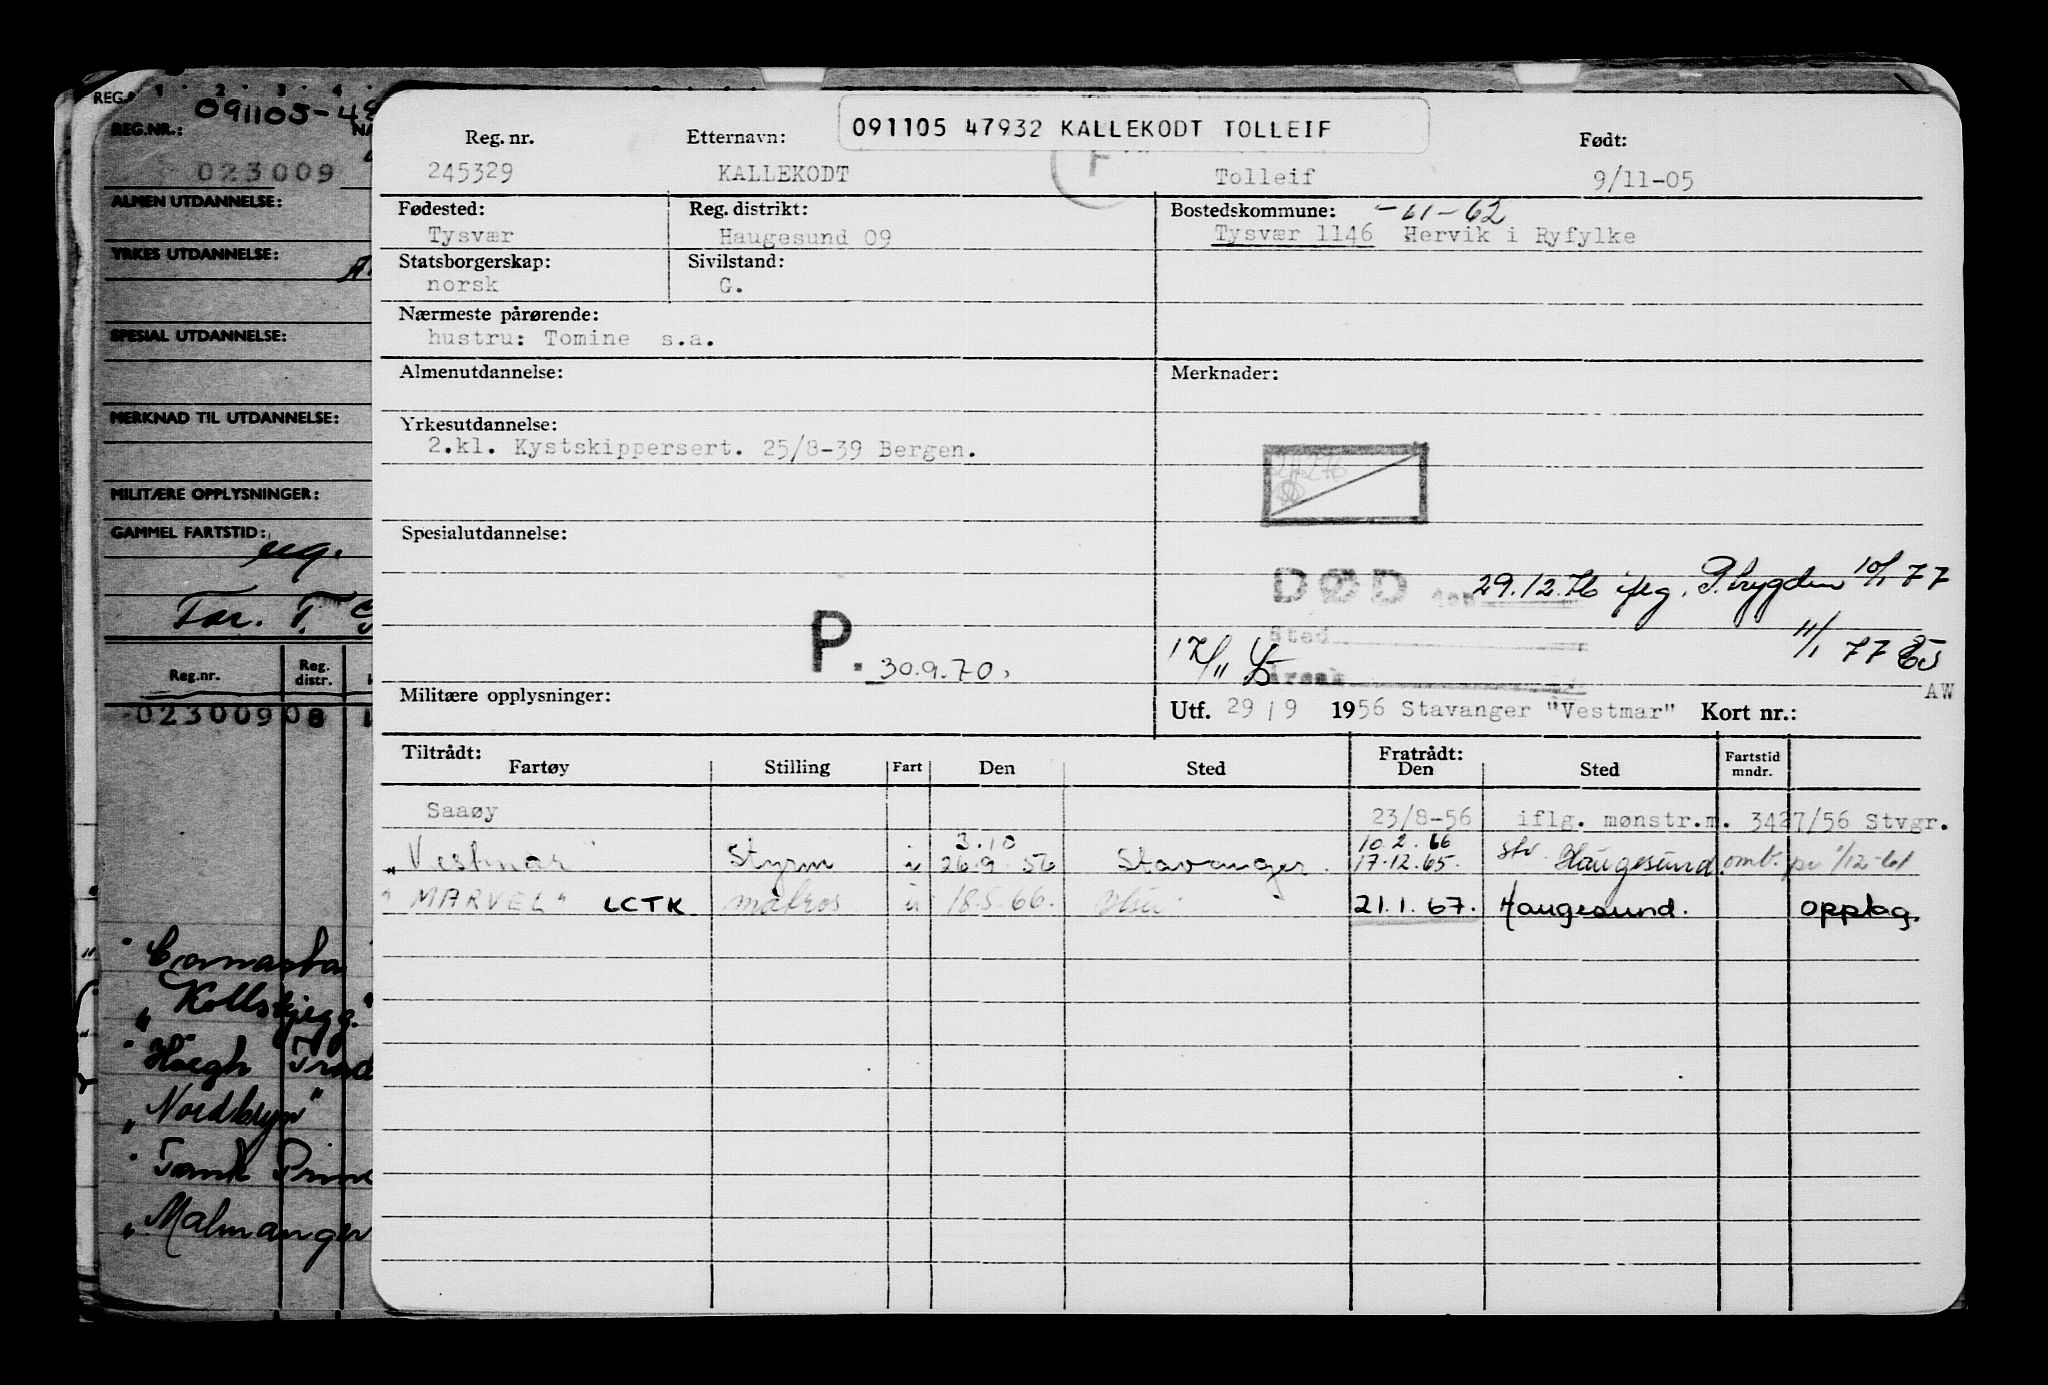 091105 47932 KALLEKODT TOLLEIF
Reg. nr. Etternavn: Født:
245329 KALLEKODT Tolleif 9/11-05
Fødested: Reg. distrikt: Bostedskommune: -61-62
Tysvær Haugesund 09 Tysvær 1146 Hervik i Ryfylke
Statsborgerskap: Sivilstand:
norsk G.
Nærmeste pårørende:
hustru: Tomine s.a.
Almenutdannelse: Merknader:
Yrkesutdannelse:
2.kl. Kystskippersert. 25/8-39 Bergen.
Spesialutdannelse:
DØD den 29.12.76 iflg. P.trygden 10/1 77
Sted 11/1 77
P. 30.9.70.
Årsak
Militære opplysninger:
AW
Utf. 29/9 1956 Stavanger "Vestmar" Kort nr.:
Tiltrådt: Fratrådt:
Fartøy Stilling Fart Den Sted Den Sted Fartstid mndr.
Saaøy 23/8-56 iflg. mønstr.m. 3427/56 Stvgr.
3.10 10.2.66
"Vestmar" Styrm u 26.9.56 Stavanger. 17.12.65. Haugesund omb. pr 1/12-61
"MARVEL" LCTK matros u 18.5.66. 21.1.67. Haugesund. opplag.
REG.NR.:
023009
ALMEN UTDANNELSE:
YRKES UTDANNELSE:
SPESIAL UTDANNELSE:
MERKNAD TIL UTDANNELSE:
MILITÆRE OPPLYSNINGER:
GAMMEL FARTSTID:
Reg.nr. Reg. distr.
023009 08
"Kollskjegg"
"Høegh
"Nordbryn"
"Malmanger